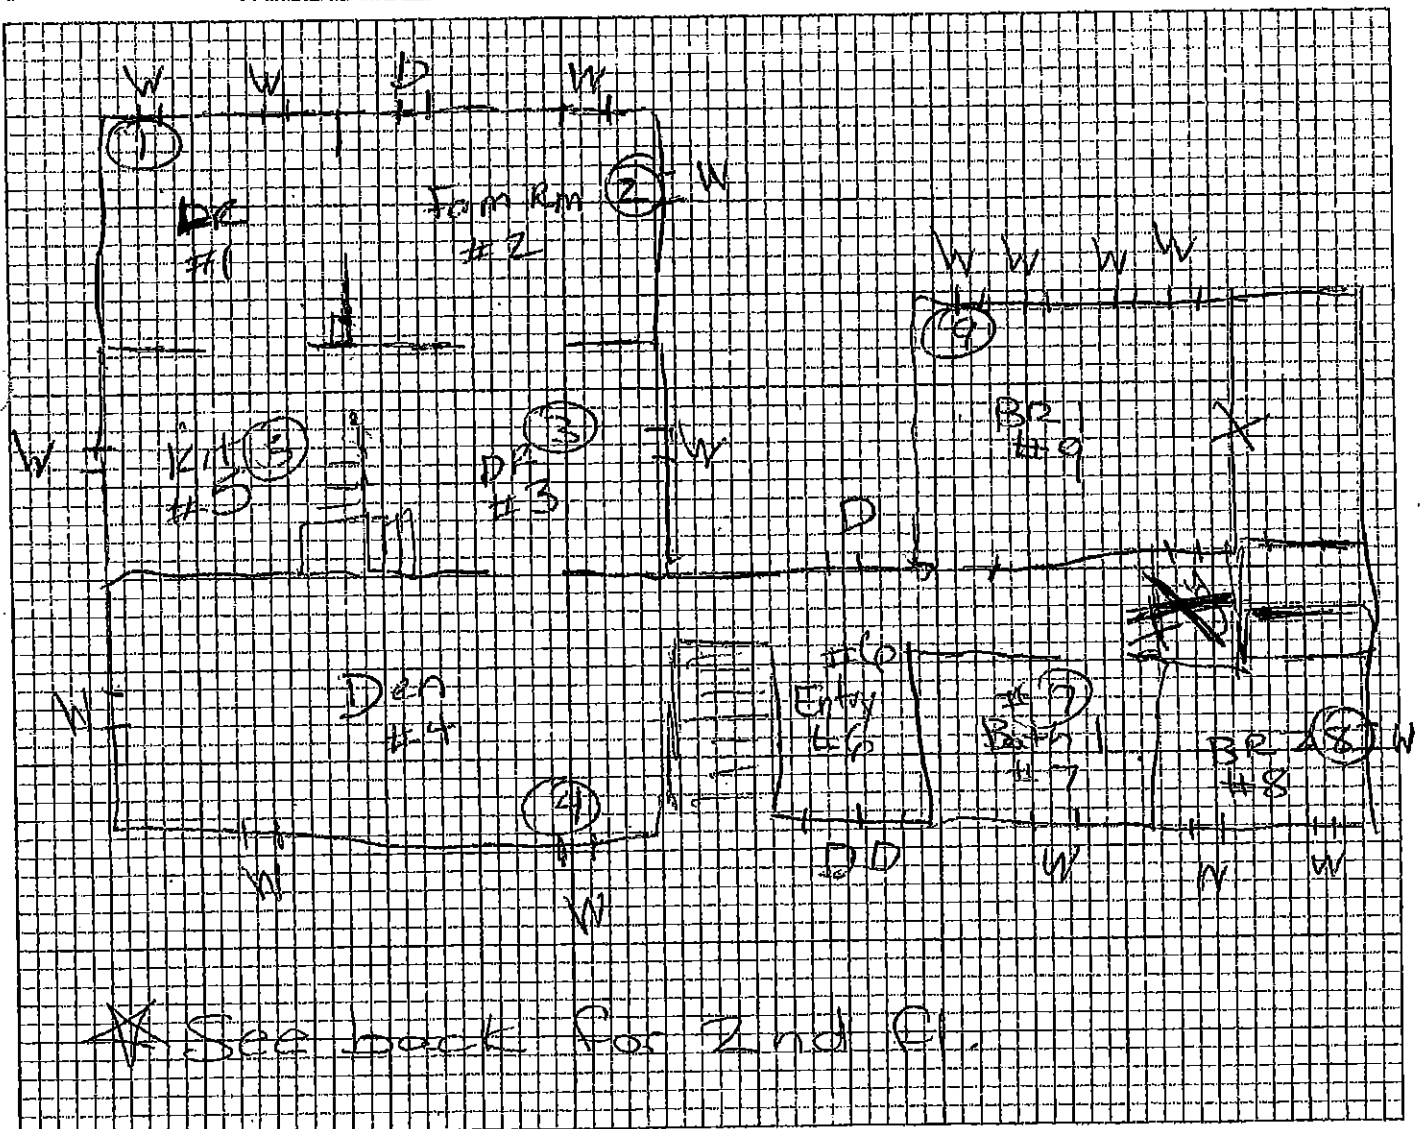 W W D W
1
2 W
Fam Rm
#2
#1
W W W W
9
BR 1
#9
W
Kit 5
#5
3
DR
#3
W
D
W
Den
#4
4
#6
Entry
#6
# 7
Bath 1
#7
BR 2 8 W
#8
W
W
D D
W
W
W
See back for 2nd Fl.